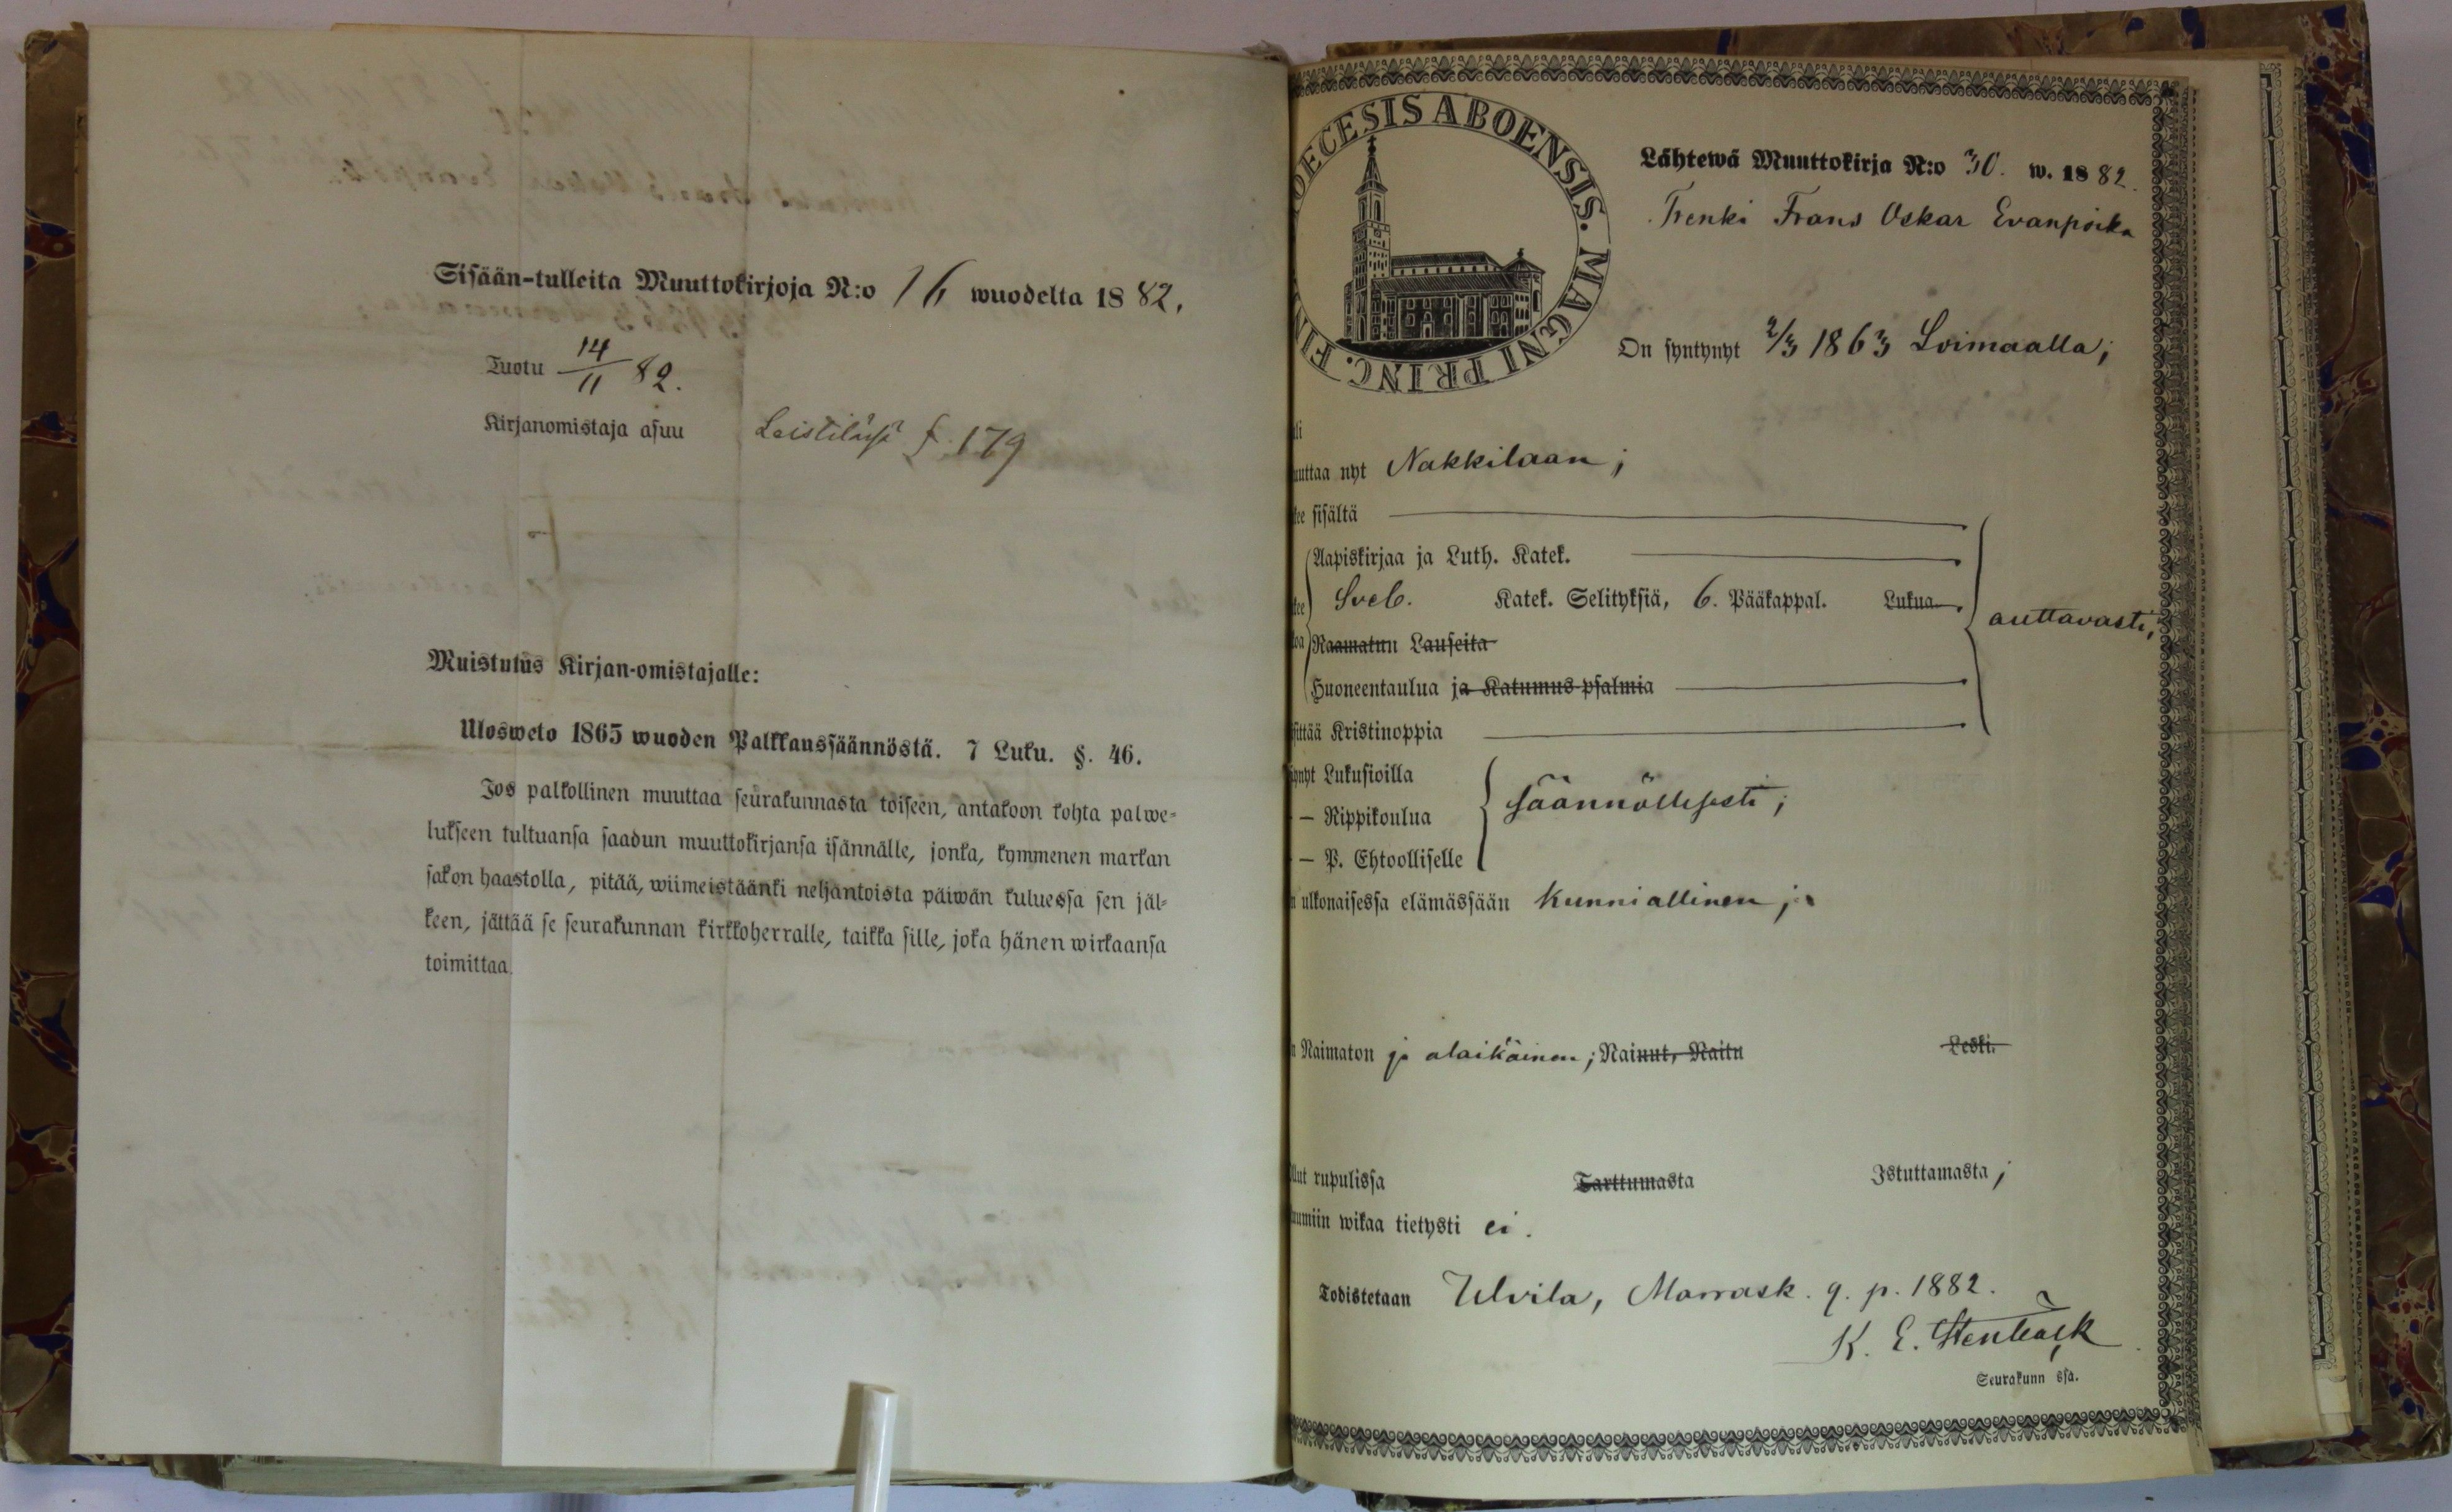 Sisään-tulleita Muuttokirjoja N:o 16 wuodelta 1882.
Tuotu 14/11 82.
Kirjanomistaja asuu Leistilässä f. 179
Muistutus Kirjan-omistajalle:
Ulosweto 1865 wuoden Palkkaussäännöstä. 7 Luku. §. 46.
Jos palkollinen muuttaa seurakunnasta toiseen, antakoon kohta palwe-
lukseen tultuansa saadun muuttokirjansa isännälle, jonka, kymmenen markan
sakon haastolla, pitää, wiimeistäänki neljäntoista päiwän kuluessa sen jäl-
keen, jättää se seurakunnan kirkkoherralle, taikka sille, joka hänen wirkaansa
toimittaa.
OECESIS ABOENSIS. MAGNI PRINC. FIN
Lähtewä Muuttokirja N:o 30. w. 1882.
Trenki Frans Oskar Evanpoika
On syntynyt 2/3 1863 Loimaalla;
li
uuttaa nyt Nakkilaan;
kee sisältä
Aapiskirjaa ja Luth. Katek.
Sveb. Katek. Selityksiä, 6. Pääkappal. Lukua
auttavasti;
Raamatun Lauseita
Huoneentaulua ja Katumus-psalmia
sittää Kristinoppia
ynyt Lukusioilla
— Rippikoulua säännöllisesti;
— P. Ehtoolliselle
n ulkonaisessa elämässään kunniallinen;
n Naimaton ja alaikäinen; Nainut, Naitu Leski.
llut rupulissa Tarttumasta Istuttamasta;
uumiin wikaa tietysti ei.
Todistetaan Ulvila, Marrask. 9. p. 1882.
K. E. Stenbäck
Seurakunn ssa.